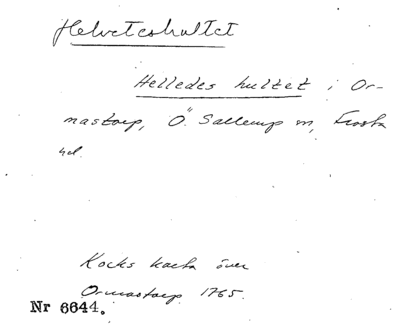 Helveteshultet
Helledes hultet i Or-
mastorp, Ö. Sallerup sn, Frosta
hd.
Kocks karta över
Ormastorp 1765.
Nr 6644.